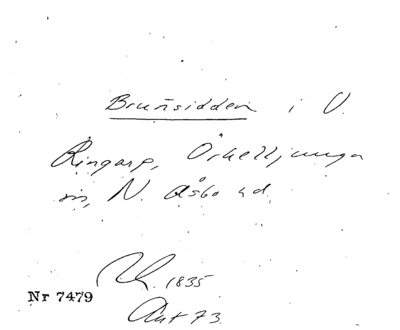 Brunsidden i V.
Ringarp, Örkelljunga
sn, N. Åsbo hd.
1835
Nr 7479
Aut 73.